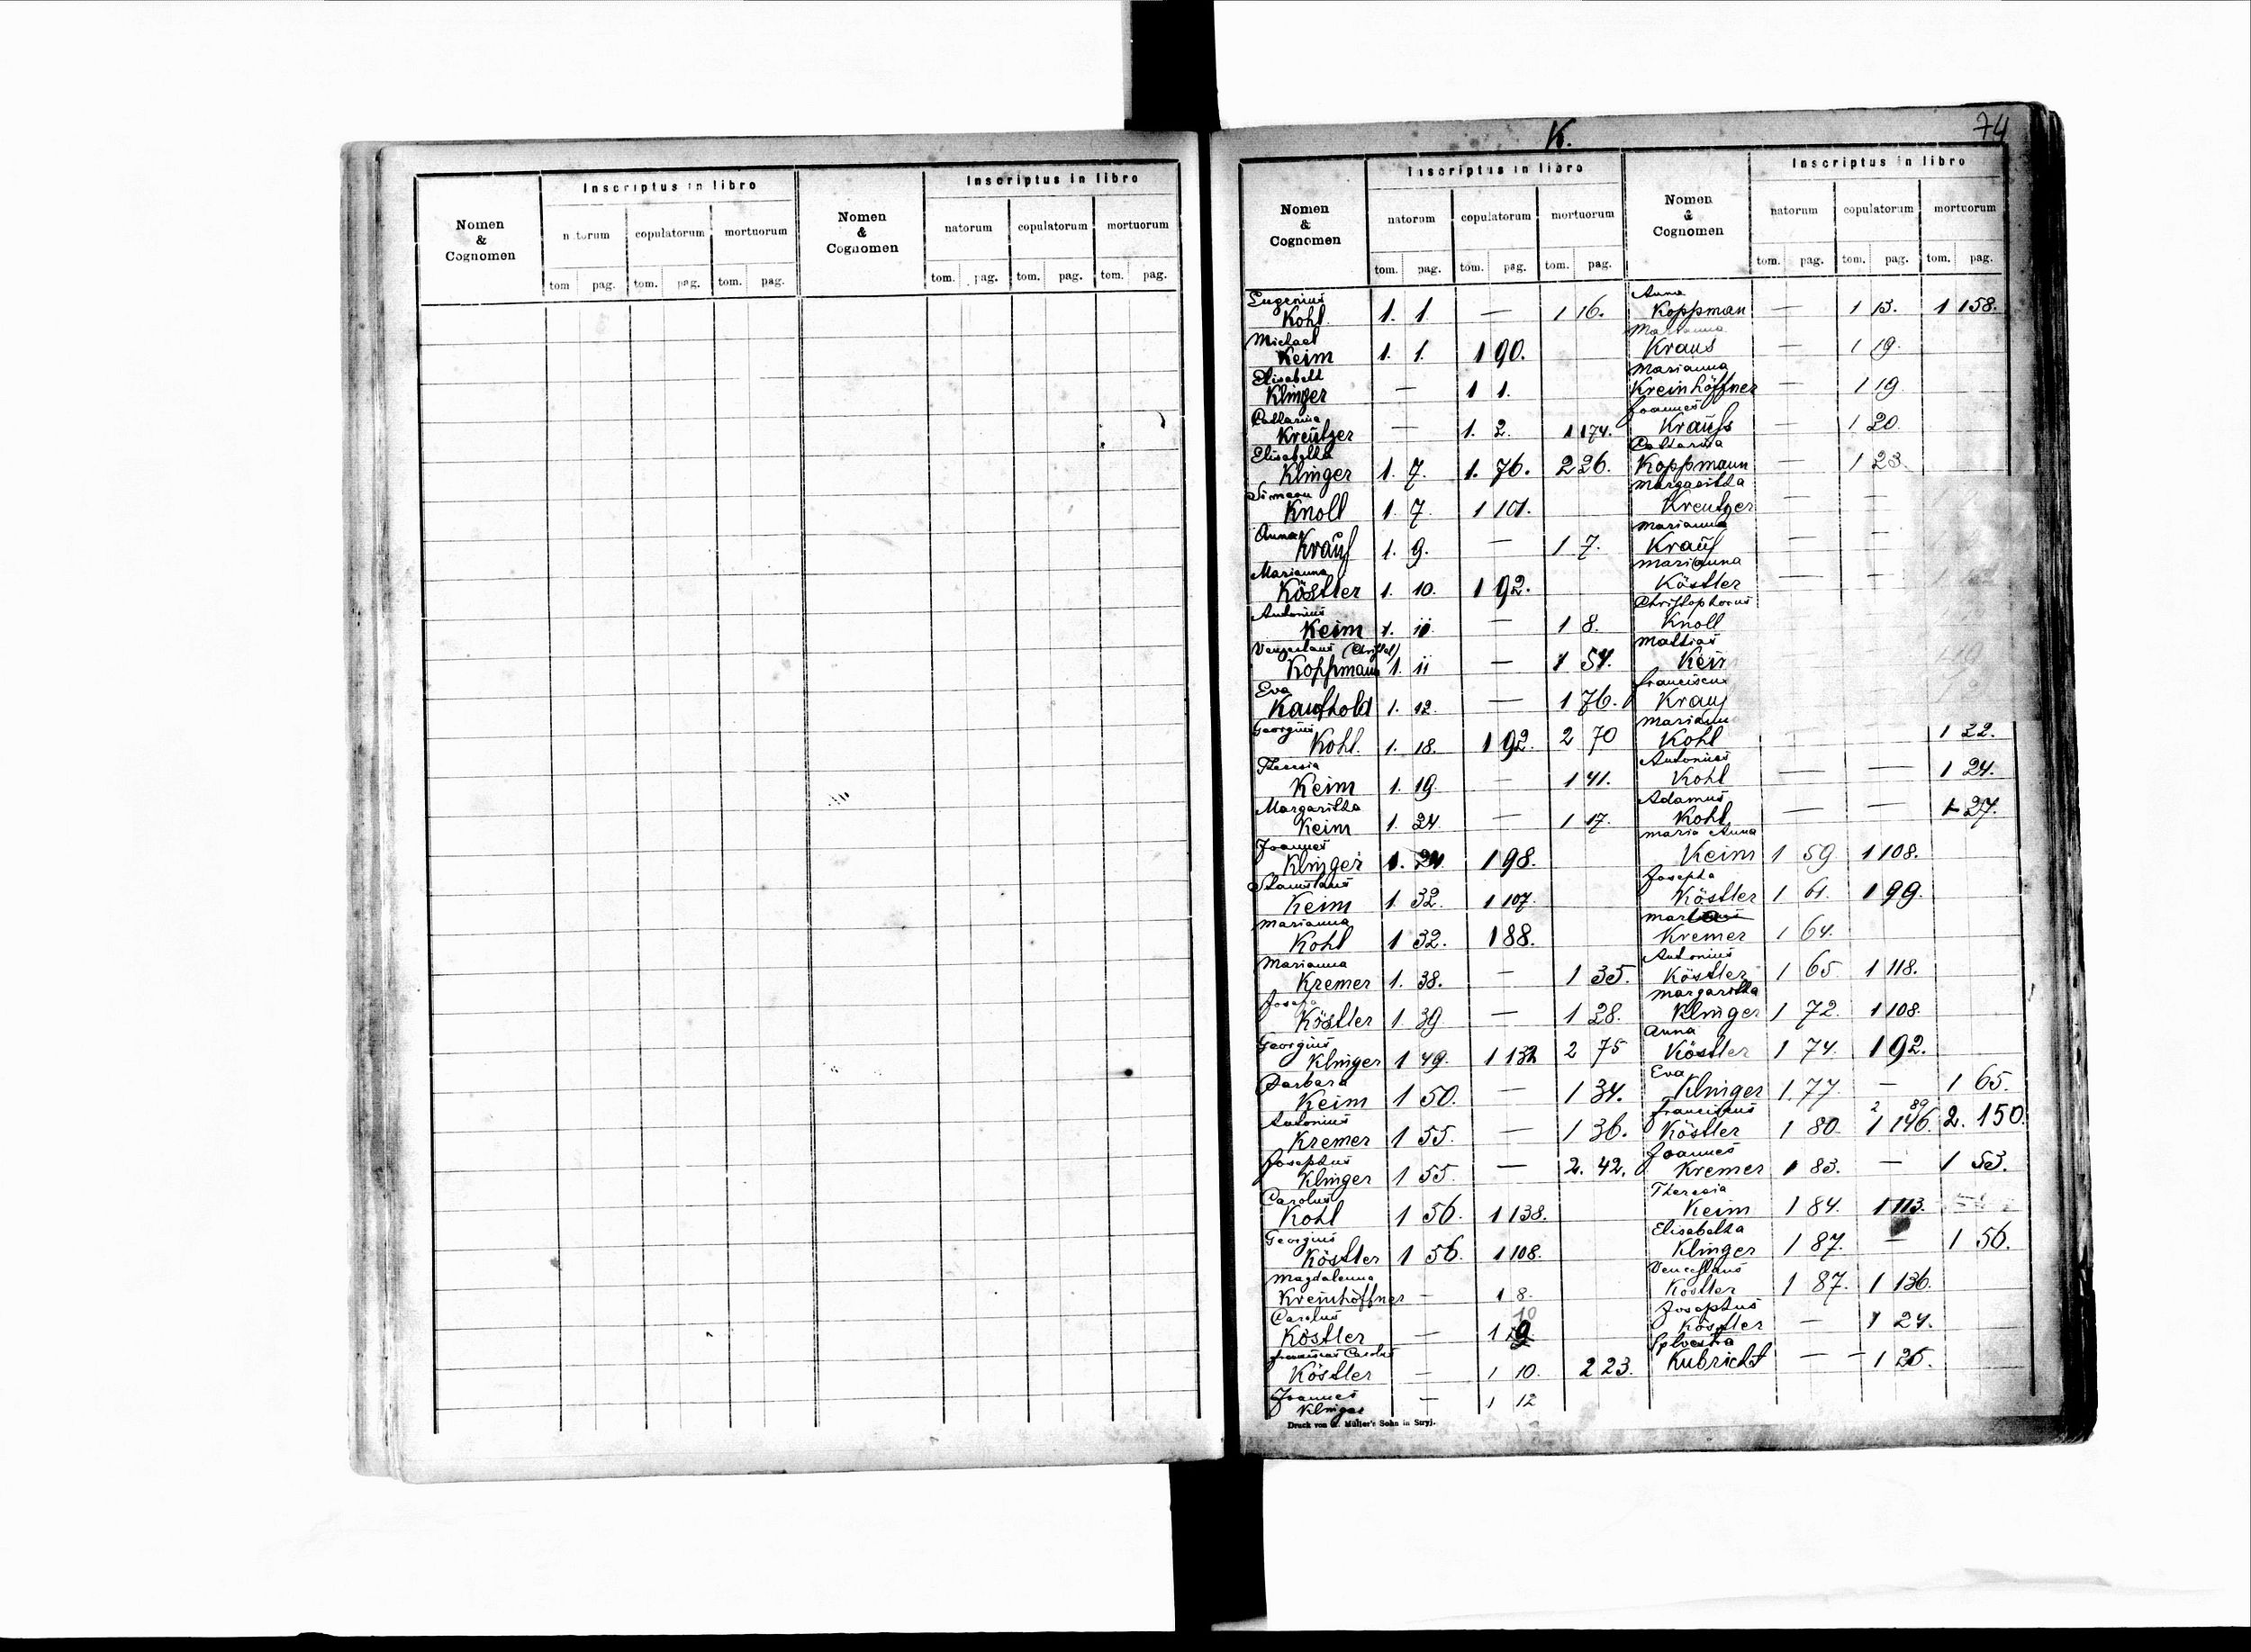 Inscriptus in libro
Inscriptus in libro
Nomen & Cognomen
natorum copulatorum mortuorum
Nomen & Cognomen
natorum copulatorum mortuorum
tom pag. tom. pag. tom. pag.
tom. pag. tom. pag. tom. pag.
K.
74
Inscriptus in libro
Inscriptus in libro
Nomen & Cognomen
natorum copulatorum mortuorum
Nomen & Cognomen
natorum copulatorum mortuorum
tom. pag. tom. pag. tom. pag.
tom. pag. tom. pag. tom. pag.
Eugenius
Kohl 1. 1. — 1 16.
Michael
Keim 1. 1. 1 90.
Elisabeth
Klinger — 1 1.
Catharina
Kreutzer — 1. 2. 1 174.
Elisabetha
Klinger 1. 7. 1. 76. 2 26.
Simeon
Knoll 1. 7. 1 101.
Anna
Krauß 1. 9. — 1 7.
Marianna
Köstler 1. 10. 1 92.
Antonius
Keim 1. 11. — 1 8.
Koppmann 1. 11 — 1 54.
Eva
Kaufhold 1. 12. — 1 76.
Georgius
Kohl. 1. 18. 1 92. 2 70
Theresia
Keim 1. 19. — 1 41.
Margaritha
Keim 1. 24. — 1 17.
Joannes
Klinger 1. 24. 1 98.
Stanislaus
Keim 1. 32. 1 107.
Marianna
Kohl 1 32. 1 88.
Marianna
Kremer 1. 38. — 1 35.
Josepha
Köstler 1 39 — 1 28.
Georgius
Klinger 1 49. 1 132 2 75
Barbara
Keim 1 50. — 1 34.
Antonius
Kremer 1 55. — 1 36.
Josephus
Klinger 1 55. — 2. 42.
Carolus
Kohl 1 56. 1 138.
Georgius
Köstler 1 56. 1 108.
Magdalenna
Kreinhöffner — 1 8.
Carolus
Köstler — 1 10
Franciscus Carolus
Köstler — 1 10. 2 23.
Joannes
Klinger — 1 12
Druck von A. Müller's Sohn in Stryj.
Anna
Koppman — 1 13. 1 158.
Marianna
Kraus — 1 19.
Marianna
Kreinhöffner — 1 19.
Joannes
Krauss — 1 20.
Catharina
Koppmann — 1 23.
Margaritha
Kreutzer — —
Marianna
Krauß — —
Marianna
Köstler — —
Christophorus
Knoll
Mathias
Keim
Franciscus
Krauß
Marianna
Kohl 1 22.
Antonius
Kohl — — 1 24.
Adamus
Kohl — — 1 27.
Maria Anna
Keim 1 59. 1 108.
Josepha
Köstler 1 61. 1 99.
Kremer 1 64.
Antonius
Köstler 1 65 1 118.
Margaritha
Klinger 1 72. 1 108.
Anna
Köstler 1 74. 1 92.
Eva
Klinger 1. 77. — 1 65.
Franciscus 2 89
Köstler 1 80. 1 146. 2. 150.
Joannes
Kremer 1 83. — 1 53.
Theresia
Keim 1 84. 1 113.
Elisabetha
Klinger 1 87. — 1 56.
Venceslaus
Köstler 1 87. 1 136.
Josephus
Köstler — 1 24.
Kubricht — — 1 26.